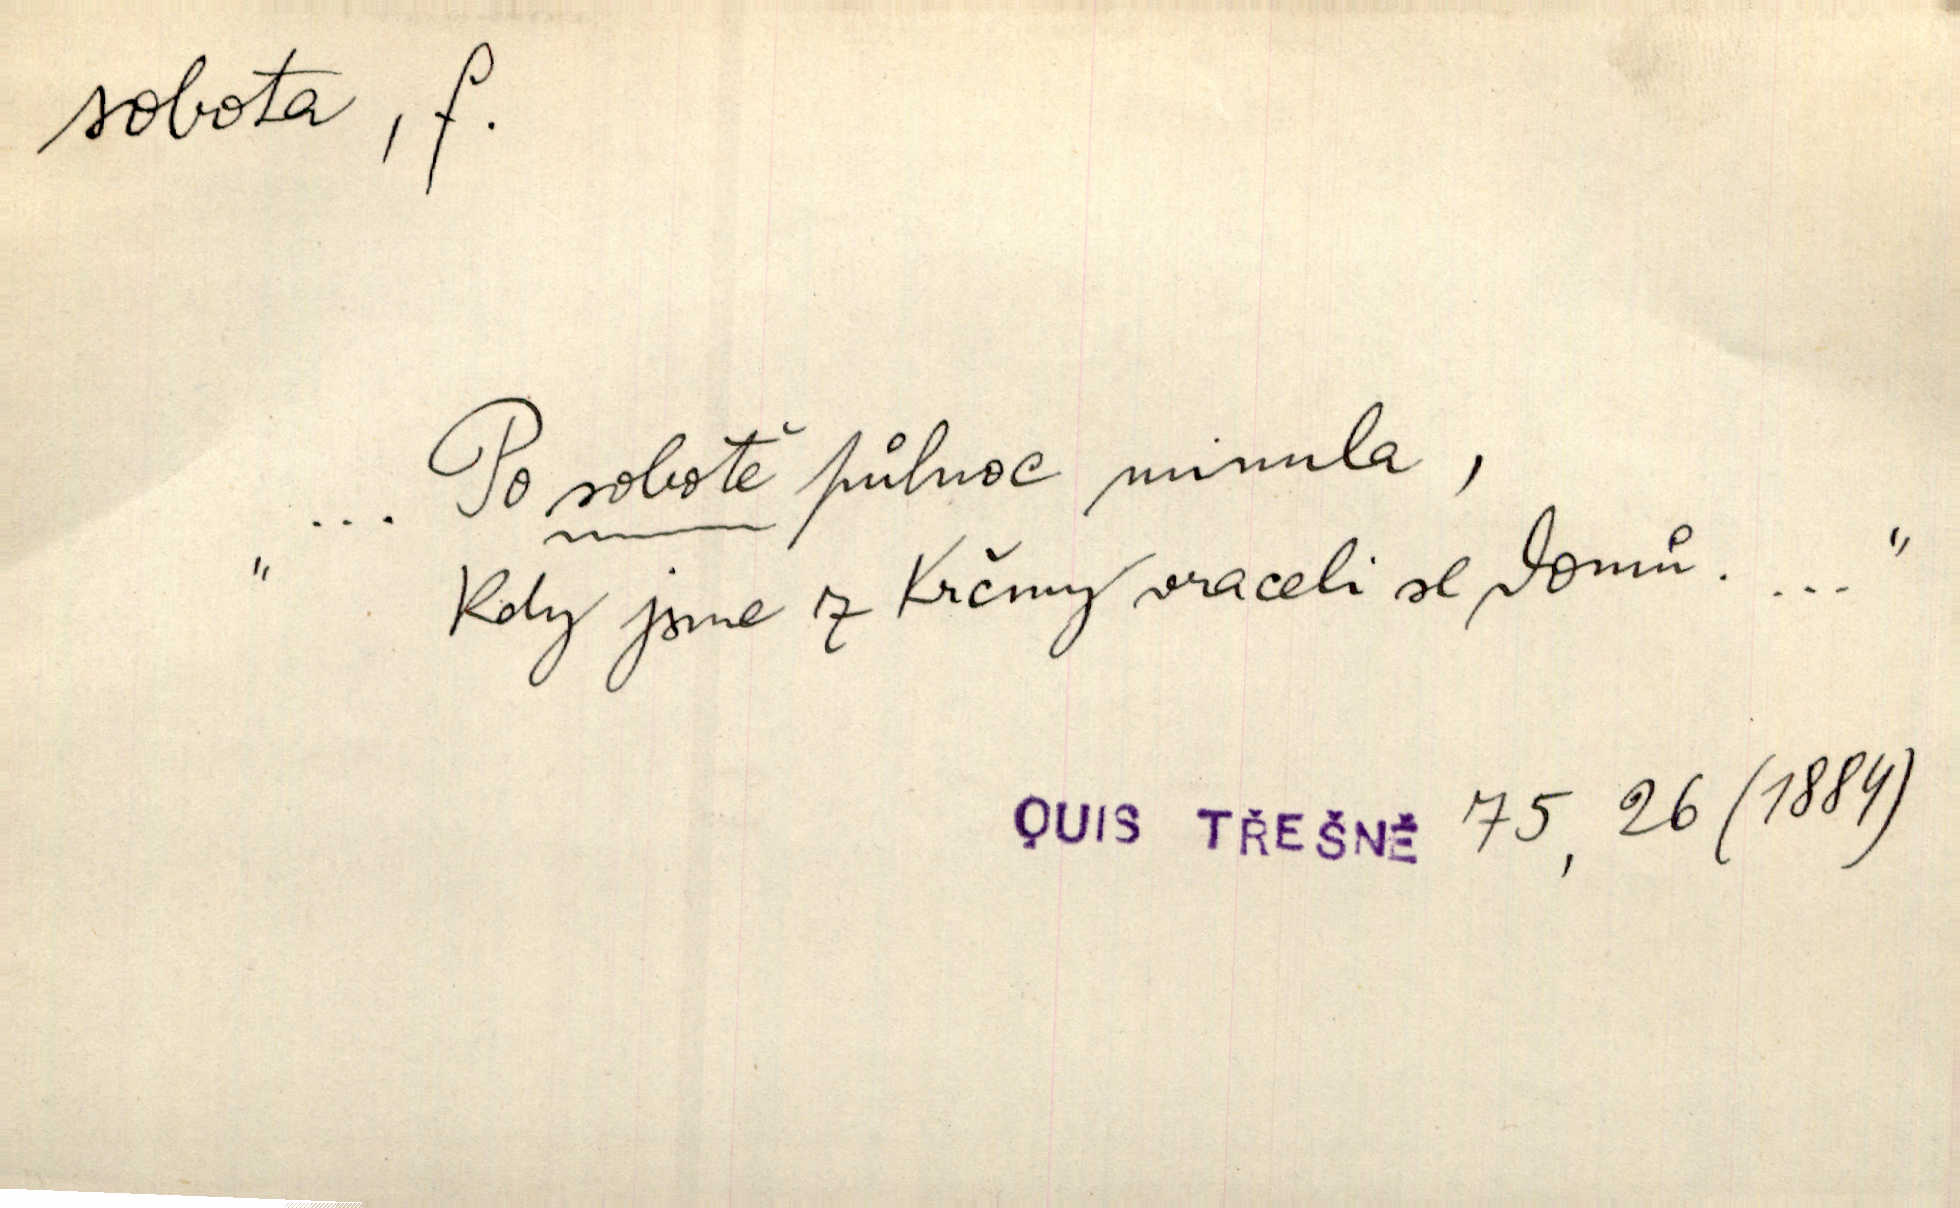 sobota, f.
"... Po sobotě půlnoc minula,
Kdy jsme z krčmy vraceli se domů. ..."
QUIS TŘEŠNĚ 75, 26 (1884)